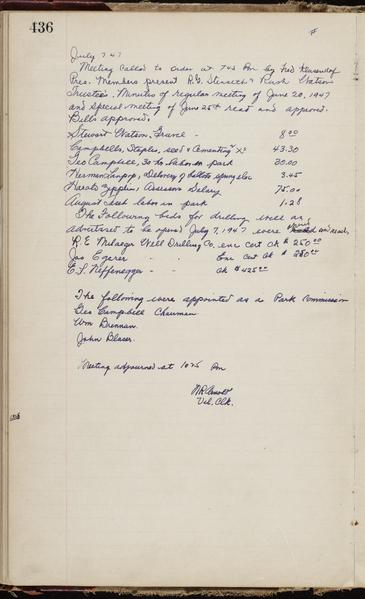 436
July 7 47
Meeting called to order at 7 45 Pm by Fred
Pres. Members present R.G. & Rush Watson
Trustees. Minutes of regular meeting of June 20, 1947
and special meeting of June 25th read and approved.
Bills approved.
Stewart Watson, Gravel - 8 00
Campbells, Staples, seed & Cementing 43.30
Geo Campbell, 30 hr labor in park 30.00
Herman, Delivery of ballots spring elec 3.45
Harold, Assessors Salary 75.00
August labor in park 1.28
The Following bids for drilling well as
advertised to be opened July 7, 1947 were opened and read.
R.E. Milaeger Well Drilling Co, one cert Ck $ 250 00
Jos - - One cert Ck $ 250 00
E.F. Neffenegger - - Ck $ 425 00
The following were appointed as a Park Commission
Geo Campbell Chairman.
Wm Brennan.
John Blaser.
Meeting adjourned at 10 25 Pm
Arnold
Vil. Clk.